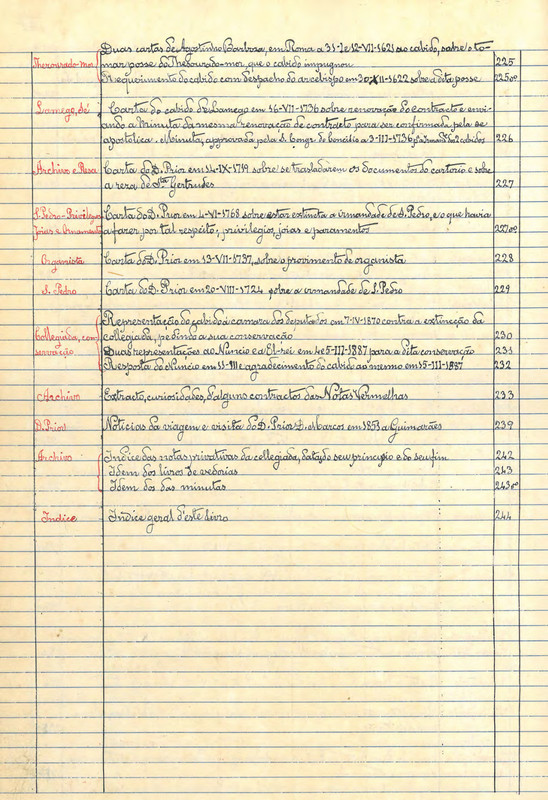 Duas cartas de Agostinho Barbosa, em Roma a 31-I e 12-VII-1621 ao cabido, sobre o to-
Thesourado-mor mar posse do Thesourado-mor, que o cabido impugnou 225
Requerimento do cabido com despacho do arcebispo em 30-XII-1622 sobre a dita posse 225vº
Lamego, sé Carta do cabido de Lamego em 16-VII-1736 sobre renovação do contracto e envi-
ando a Minuta da mesma renovação de contracto para ser confirmada pela sé
apostolica. Minuta, approvada pela S. Congr. do Concilio a 3-III-1736, dos 2 cabidos 226
Archivo e Resa Carta do D. Prior em 14-IX-1719 sobre se trasladarem os documentos do cartorio e sobre
a reza de Stª Gertrudes 227
S. Pedro-Privilegios Carta do D. Prior em 4-VI-1768 sobre estar extincta a irmandade de S. Pedro, e o que havia
Joias e Ornamentos a fazer por tal respeito; privilegios, joias e paramentos 227vº
Organista Carta do D. Prior em 13-VII-1737, sobre o provimento de organista 228
S. Pedro Carta do D. Prior em 20-VIII-1724 sobre a irmandade de S. Pedro 229
Representação do cabido á camara dos deputados em 7-IV-1870 contra a extincção da
Collegiada, con- collegiada, pedindo a sua conservação 230
servação Duas representações ao Nuncio e a El-rei em 4 e 5-III-1887 para a dita conservação 231
Resposta do Nuncio em 11-III e agradecimento do cabido ao mesmo em 15-III-1887 232
Archivo Extracto, curiosidades, d'alguns contractos das Notas Vermelhas 233
D. Prior Noticias da viagem e visita do D. Prior D. Marcos em 1853 a Guimarães 239
Archivo Indice das notas privativas da collegiada, data do seu principio e do seu fim 242
Idem dos livros de vedorias 243
Idem dos das minutas 243vº
Indice Indice geral d'este livro 244